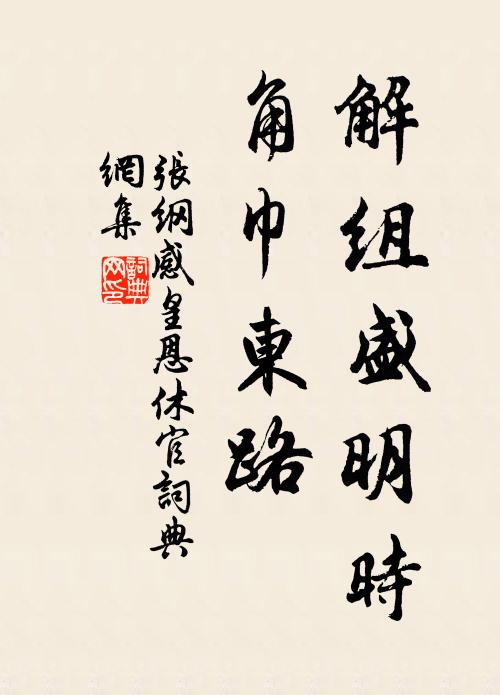 解組盛明時
角巾東路
張綱感皇恩休官詞典
網集
詞典網印